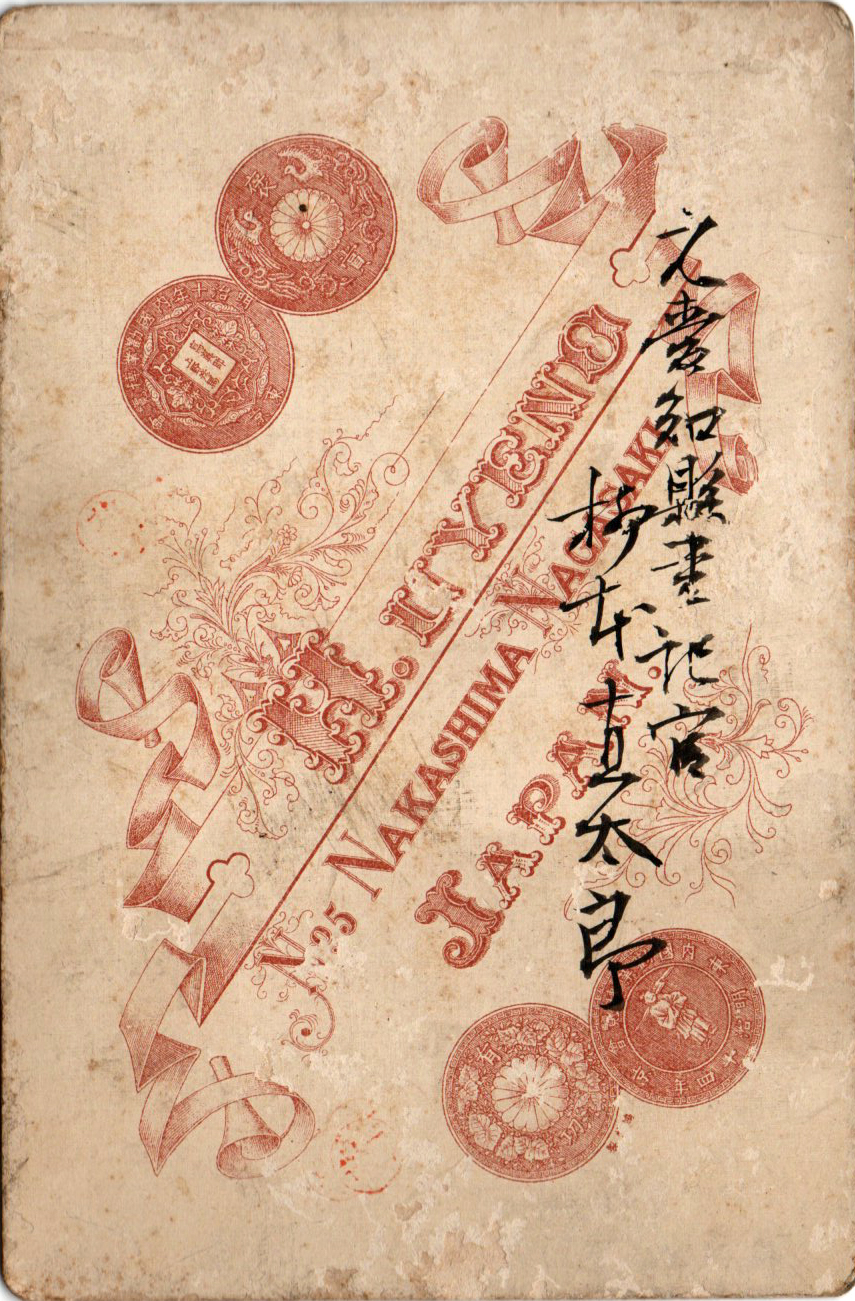 H. UYENO
No. 25 NAKASHIMA NAGASAKI.
JAPAN.
元愛知縣書記官
柳本直太郎
有功